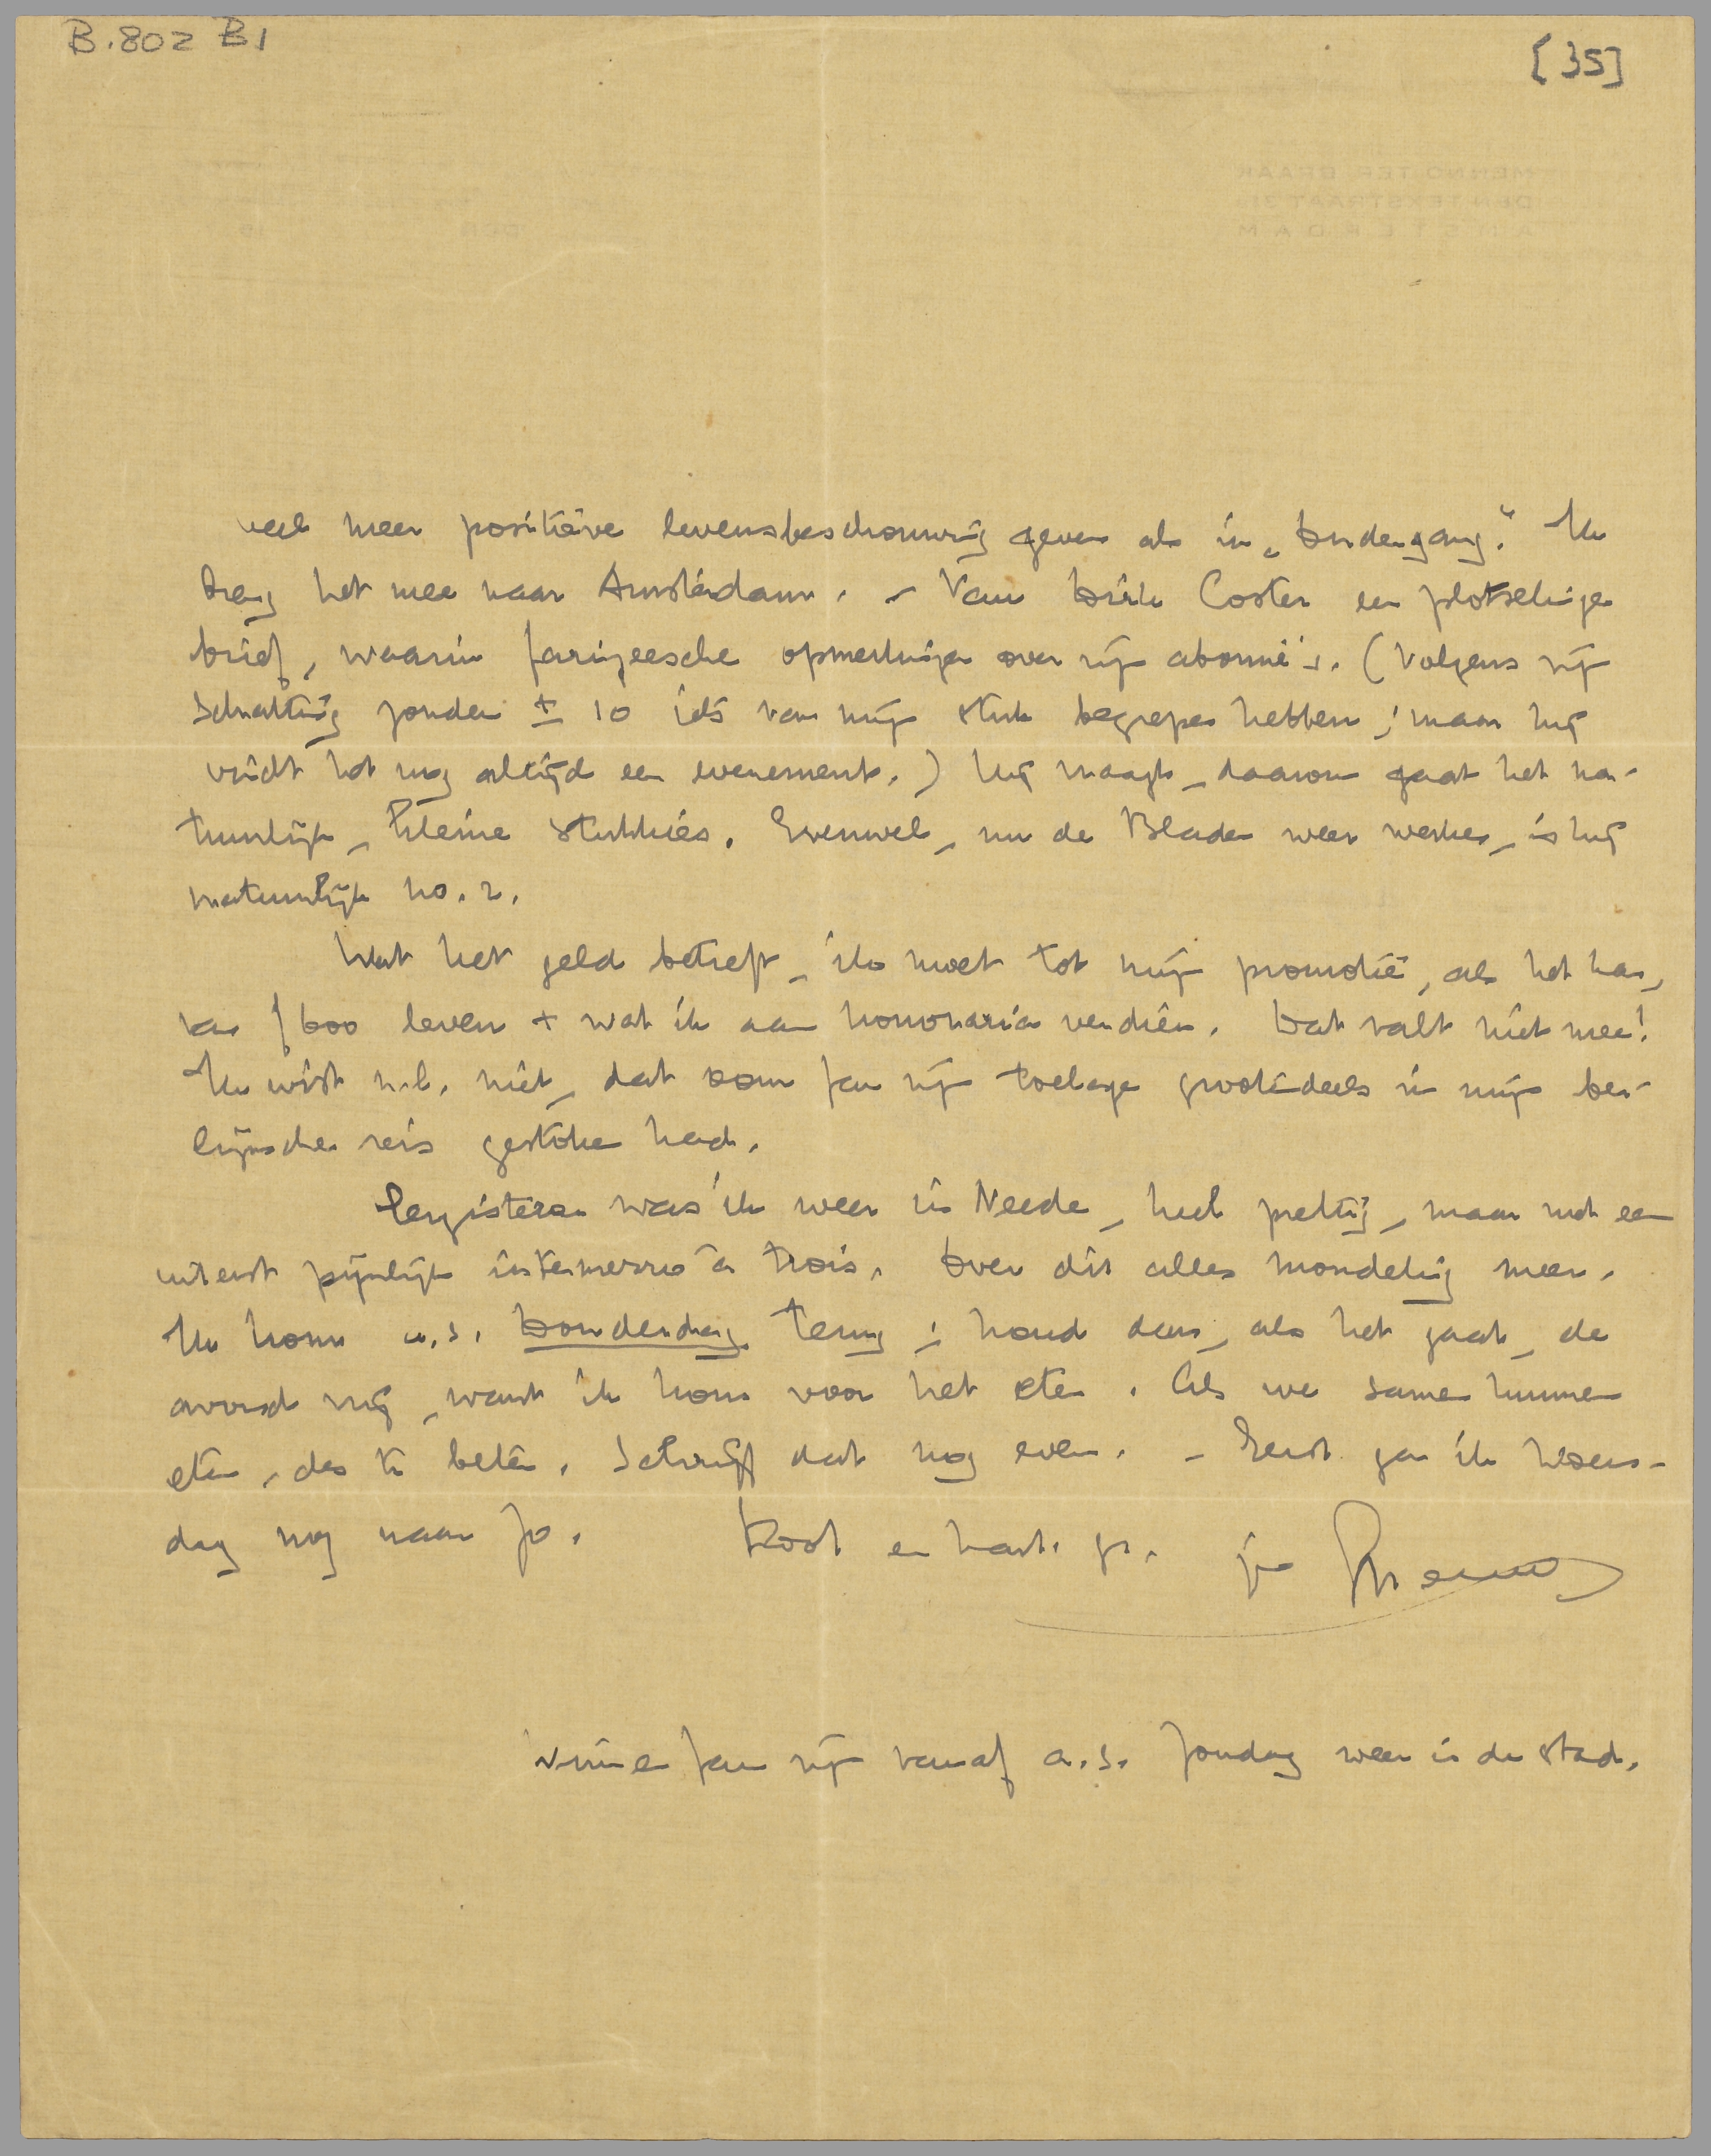 B.802 B1
[35]
veel meer positieve levensbeschouwing geven als in „Ondergang". Ik
breng het mee naar Amsterdam. – Van Dirk Coster een plotselinge
brief, waarin farizeesche opmerkingen over zijn abonné's. (Volgens zijn
schatting zouden ± 10 iets van mijn stuk begrepen hebben; maar hij
vindt het nog altijd een evenement.) Hij vraagt, daarom gaat het na-
tuurlijk, kleine stukkies. Evenwel, nu de Bladen weer werken, is hij
natuurlijk no. 2.
Wat het geld betreft, ik moet tot mijn promotie, als het kan,
van f 600 leven + wat ik aan honoraria verdien. Dat valt niet mee!
Ik wist n.l. niet, dat oom Jan mijn toelage grootendeels in mijn ber-
lijnsche reis gestoken had.
Eergisteren was ik weer in Neede, heel prettig, maar met een
uiterst pijnlijk intermezzo à trois. Over dit alles mondeling meer.
Ik kom a.s. Donderdag terug; houd dan, als het gaat, de
avond vrij, want ik kom voor het eten. Als we samen kunnen
eten, des te beter. Schrijf dat nog even. – Eerst ga ik Woens-
dag nog naar Jo.
Dood en hart. gr. je Menno
Wim en Jan zijn vanaf a.s. Zondag weer in de stad.